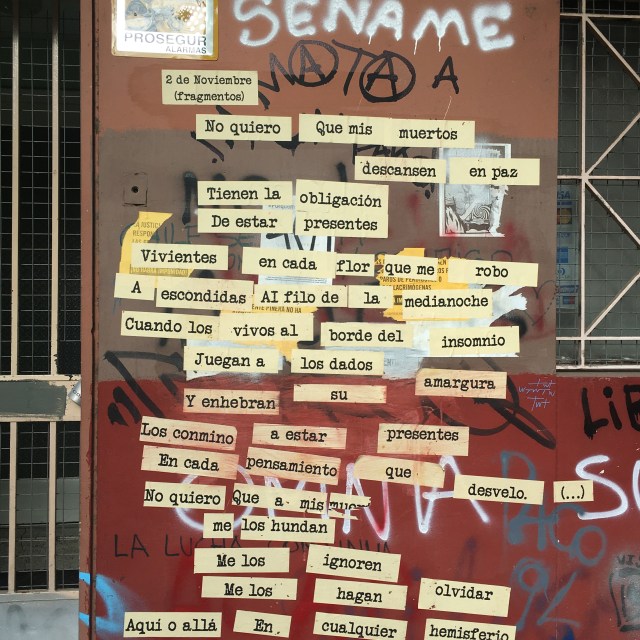 SENAME
PROSEGUR
ALARMAS
MATA A
2 de Noviembre
(fragmentos)
No quiero Que mis muertos
descansen en paz
Tienen la obligación
De estar presentes
Vivientes en cada flor que me robo
A escondidas Al filo de la medianoche
Cuando los vivos al borde del insomnio
Juegan a los dados
Y enhebran su amargura
Los conmino a estar presentes
En cada pensamiento que desvelo. (...)
No quiero Que a mis
me los hundan
LA LUCHA CONTINUA
Me los ignoren
Me los hagan olvidar
Aquí o allá En cualquier hemisferio